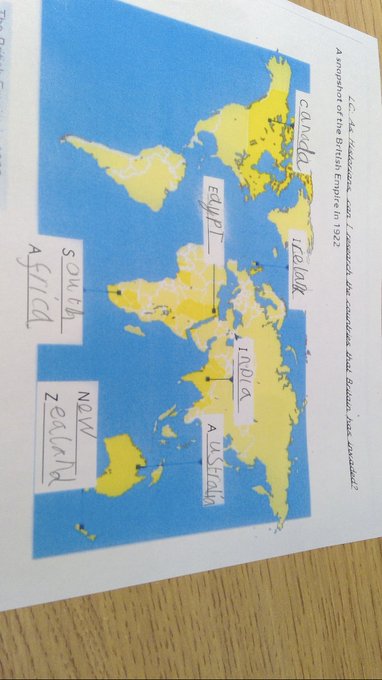 LC: As Historians, can I research the countries that Britain has invaded?
A snopshot of the British Empire in 1922
canada
Irelak
Egypt
India
South
Africa
Australia
New
Zealand